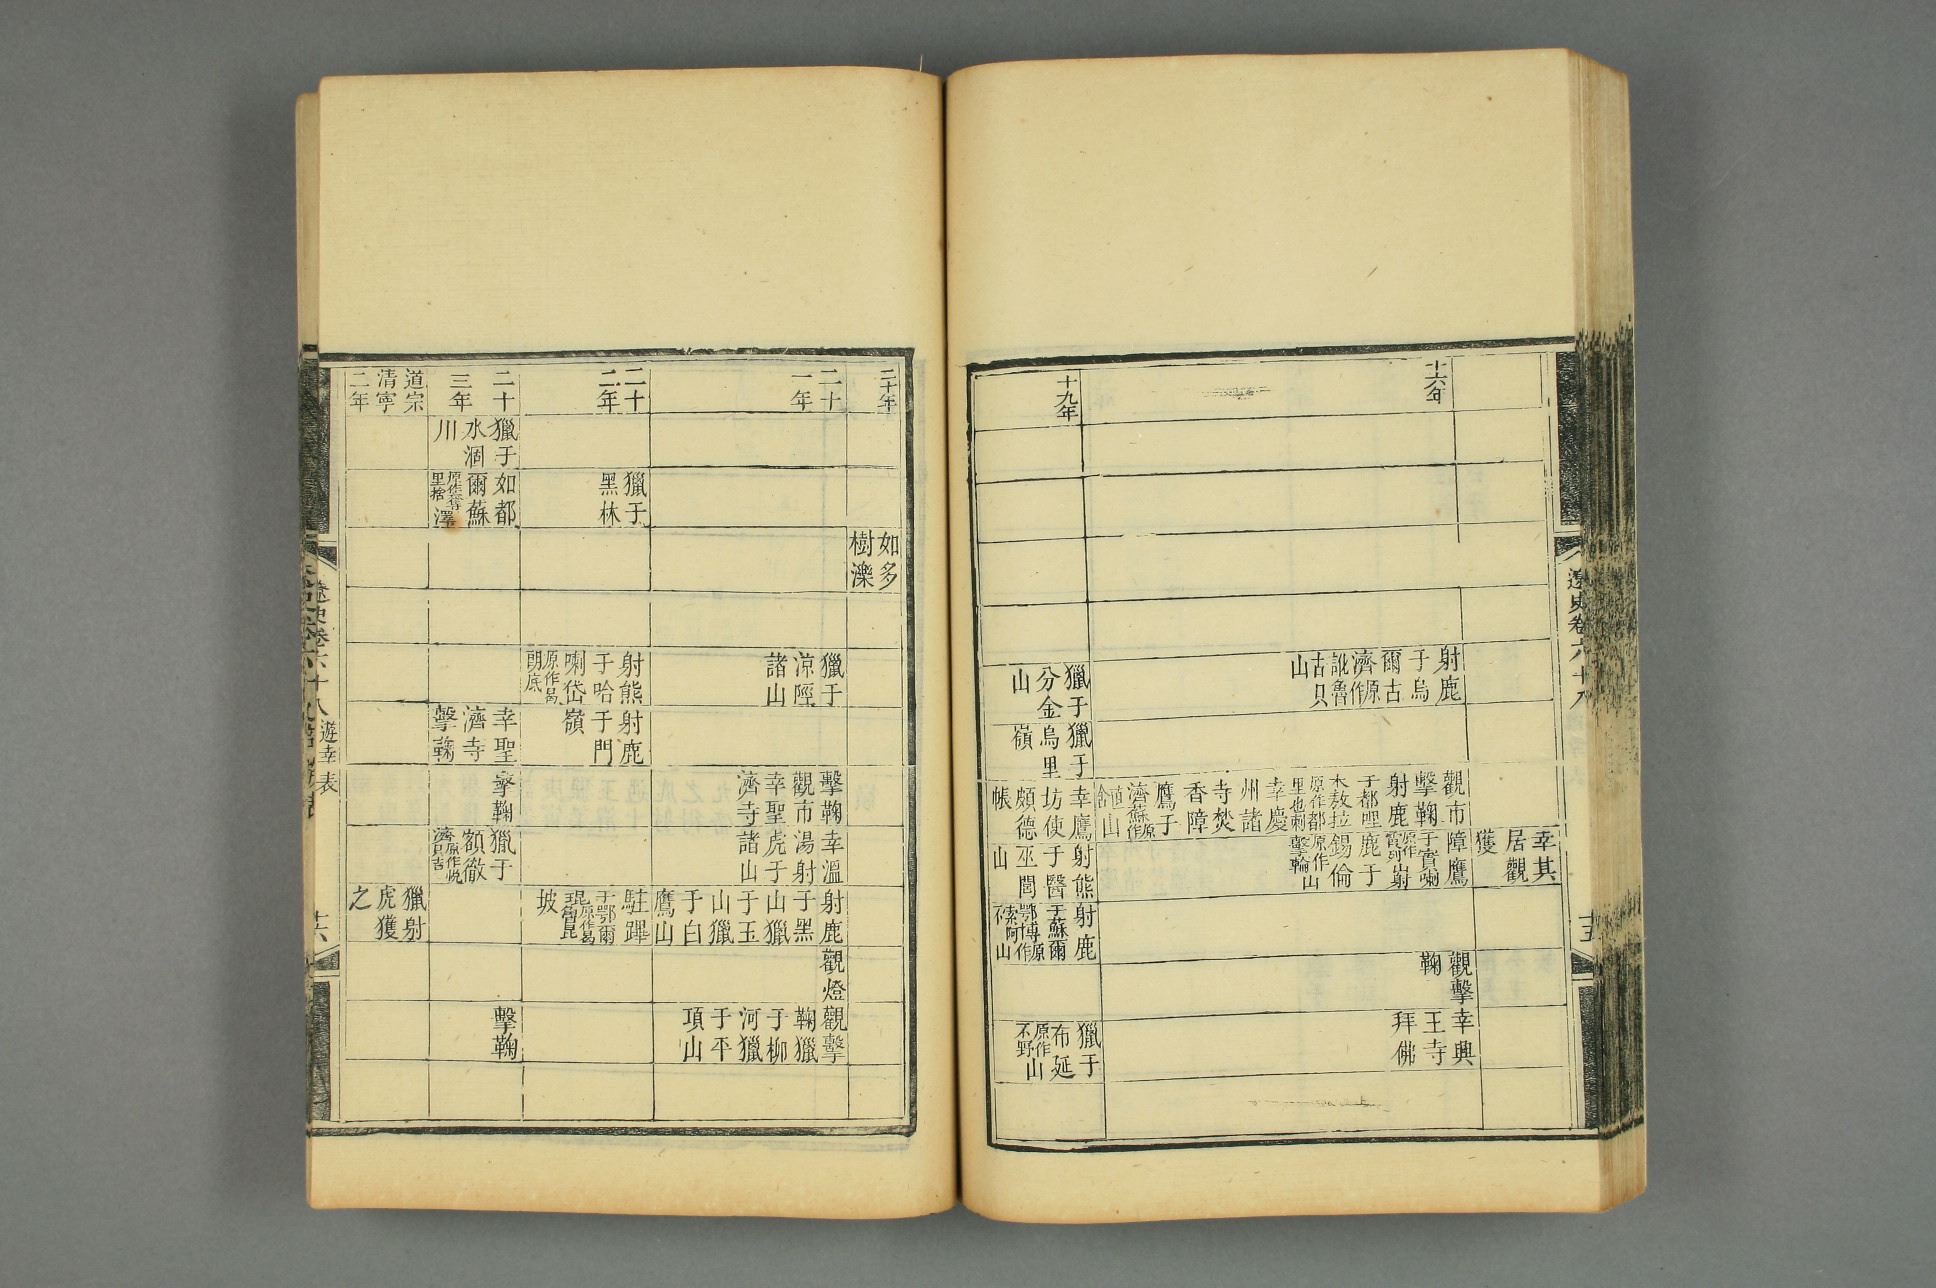 遼史卷六十八
十五
幸其
居觀
獲
十六年
射鹿
于烏
爾古
濟原作
訛魯
古只
山
觀市
擊鞠
射鹿
于都哩
木敖拉
原作都
里也剌
幸慶
州諸
寺焚
香障
鷹于
濟蘇原作
直
捨山
障鷹
于實喇
原作
霞列射
鹿于
錫倫
原作山
擊輪
觀擊
鞠
幸興
王寺
拜佛
十九年
獵于
分金
山
獵于
烏里
嶺
幸鷹
坊使
頗德
帳
射熊
于醫
巫閭
山
射鹿
于蘇爾
鄂博原作
索阿
不山
獵于
布延
原作
不野山
二十年
如多
樹濼
二十
一年
獵于
涼陘
諸山
擊鞠
觀市
幸聖
濟寺
幸溫
湯射
虎于
諸山
射鹿
于黑
山獵
于玉
山獵
于白
鷹山
觀燈
觀擊
鞠獵
于柳
河獵
于平
項山
二十
二年
獵于
黑林
射熊
于哈
喇岱
原作曷
朗底
射鹿
于門
嶺
駐蹕
于鄂爾
琨原作曷
魯昆
坡
二十
三年
獵于
水涸
川
如都
爾蘇
原作奪
里捨澤
幸聖
濟寺
擊鞠
擊鞠
獵于
額徹
濟原作悅
只吉
擊鞠
道宗
清寧
二年
獵射
虎獲
之
遼史卷六十八 遊幸表
十六